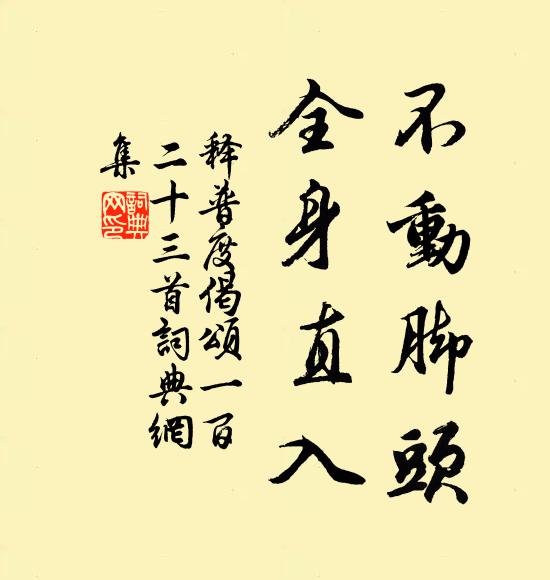 不動脚頭
全身直入
释普度偈頌一百
二十三首詞典網
集
詞典网印